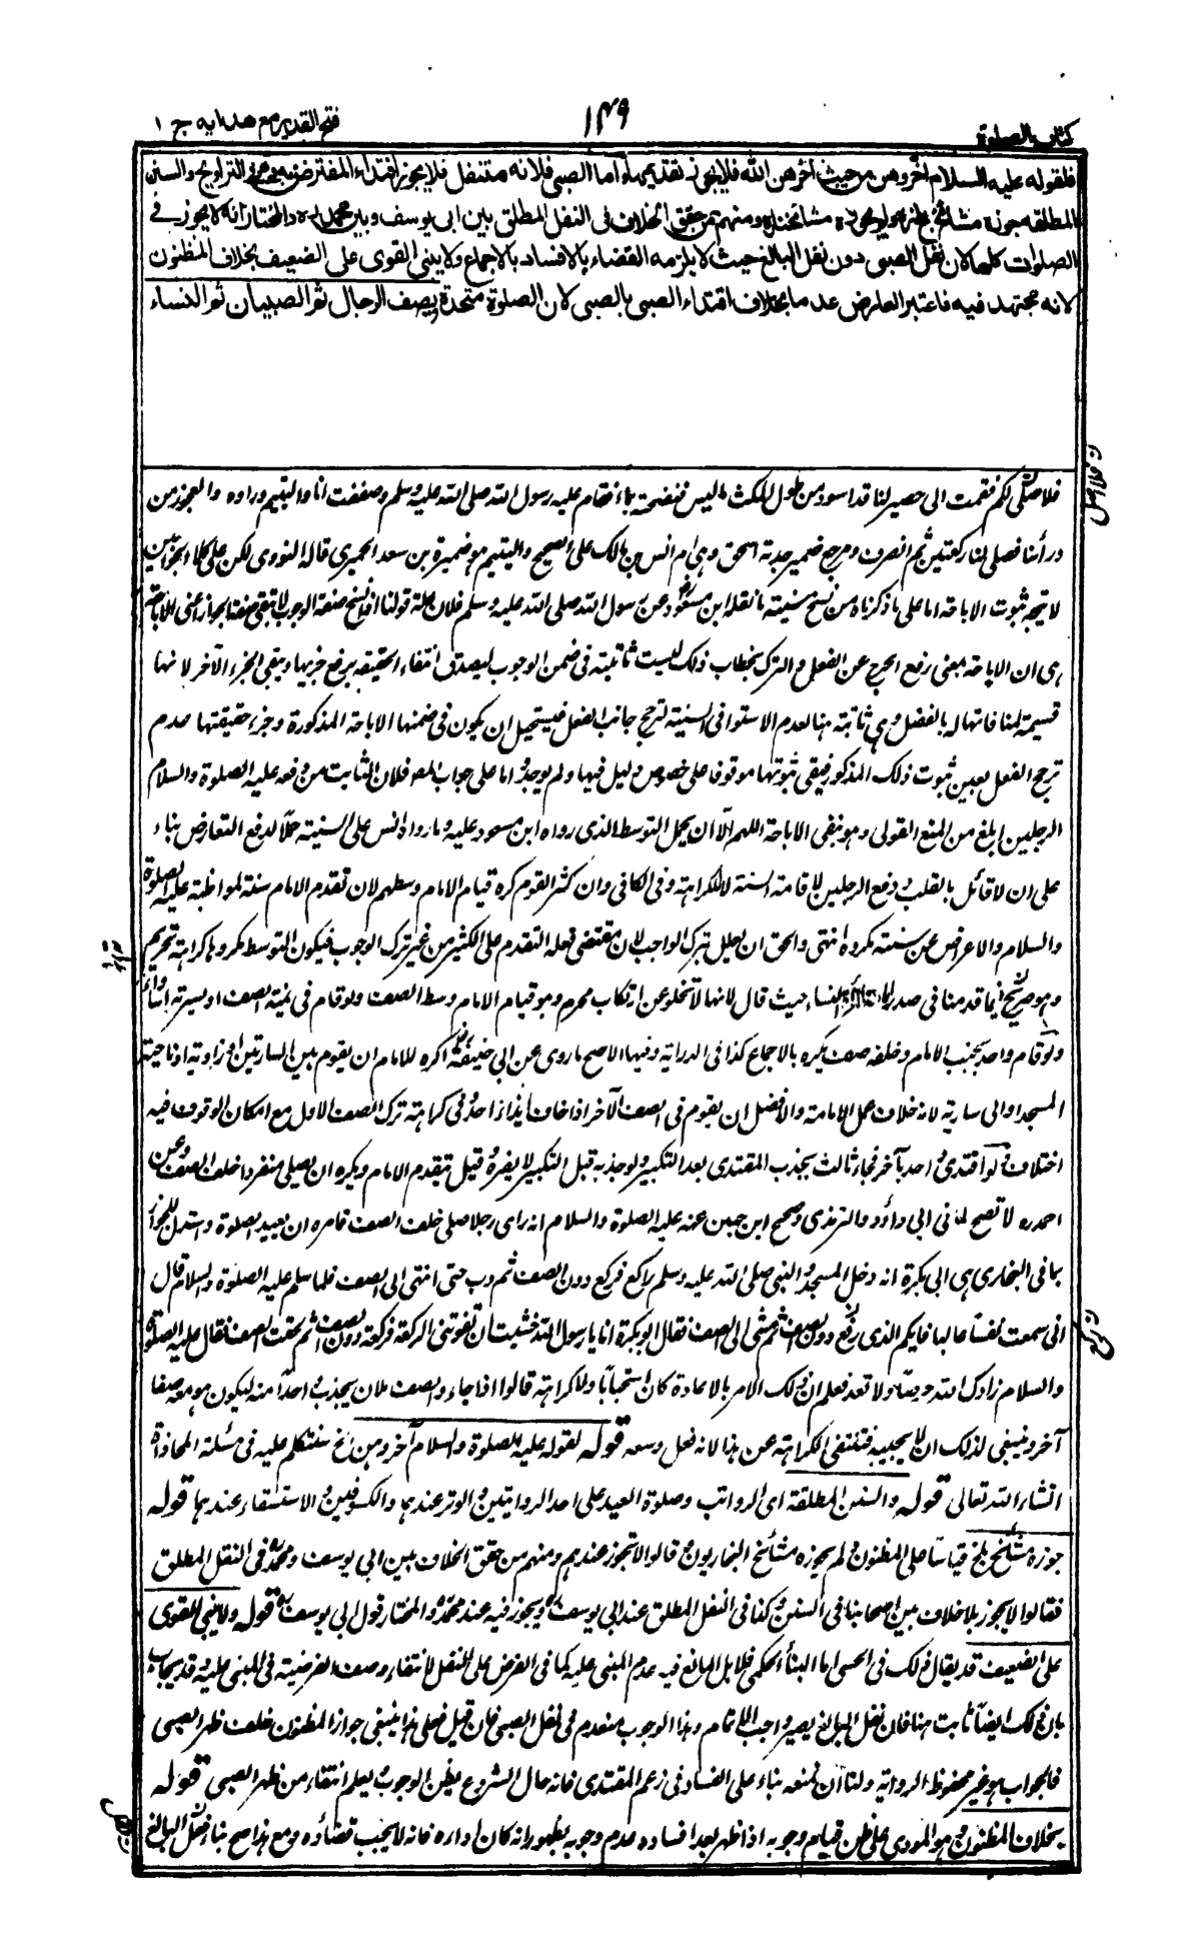 كتاب الصلوة
١٤٩
فتح القدير مع هدايه ج ١
فلقوله عليه السلام اخروهن من حيث اخرهن الله فلا يجوز تقديمها واما الصبى فلانه متنفل فلا يجوز اقتداء المفترض به وفى التراويح والسنن
المطلقه جوزه مشائخ بلخ ولم يجوزه مشائخنا ومنهم من حقق الخلاف فى النفل المطلق بين ابى يوسف وبين محمد ره والمختار انه لا يجوز فى
الصلوات كلها لان نفل الصبى دون نفل البالغ حيث لا يلزمه القضاء بالافساد بالاجماع ولا يبنى القوى على الضعيف بخلاف المظنون
لانه مجتهد فيه فاعتبر العارض عدما بخلاف اقتداء الصبى بالصبى لان الصلوة متحدة ويصف الرجال ثم الصبيان ثم النساء
فلاصلى لكم فقمت الى حصير لنا قد اسود من طول المكث ما ليس فنضحته بماء فقام عليه رسول الله صلى الله عليه وسلم وصففت انا واليتيم وراءه والعجوز من
ورائنا فصلى لنا ركعتين ثم انصرف ومرجع ضمير جدته اسحق وهى ام انس بن مالك على الصحيح واليتيم هو ضميرة بن سعد الحميرى قاله النووى لكن على كلا الجوابين
لا يتجه ثبوت الاباحة اما على ما ذكرناه من نسخ سنية ما نقله ابن مسعود عن رسول الله صلى الله عليه وسلم فلان علة قولنا اذا نسخ صفة الوجوب لا تبقى صفة الجواز اعنى الاباحة
هى ان الاباحة بمعنى رفع الحرج عن الفعل والترك بخطاب ذلك ليست ثابتة فى ضمن الوجوب ليصدق انتفاء الحقيقة برفع جزئها ويبقى الجزء الآخر لانها
قسيمة لمنافاتها له بالفصل وهى ثابتة هنا لعدم الاستواء فى السنية ترجح جانب الفعل فيستحيل ان يكون فى ضمنها الاباحة المذكورة وجزء حقيقتها عدم
ترجح الفعل بعين ثبوت ذلك المذكور فبقى ثبوتها موقوفا على خصوص دليل فيها ولم يوجد واما على جواب المص فلان الثابت من فعله عليه الصلوة والسلام
الرجلين ابلغ من المنع القولى وهو نفى الاباحة اللهم الا ان يحمل التوسط الذى رواه ابن مسعود عليه وما رواه انس على السنية حملا لدفع التعارض بناء
على ان لا قائل بالقلب ودفع الرجلين لاقامة السنة لا للكراهة وفى الكافى وان كثر القوم كره قيام الامام وسطهم لان تقدم الامام سنة لمواظبة عليه الصلوة
والسلام والاعراض عن سنته مكروه انتهى والحق ان يعلل بترك الواجب لان مقتضى فعله التقدم على الكثير من غير ترك الوجوب فيكون التوسط مكروها كراهة تحريم
وهو صريح فيما قدمنا فى صدر النساء حيث قال لانها لا تخلو عن ارتكاب محرم وهو قيام الامام وسط الصف ولو قام فى يمنة الصف او يسرته اساءوا
ولو قام واحد بجنب الامام وخلفه صف يكره بالاجماع كذا فى الدراية وفيها الاصح ما روى عن ابى حنيفة اكره للامام ان يقوم بين الساريتين او زاوية او ناحية
المسجد او الى سارية لانه خلاف عمل الامامة والافضل ان يقوم فى الصف الآخر اذا خاف ايذاء احد وفى كراهة ترك الصف الاول مع امكان الوقوف فيه
اختلاف ولو اقتدى واحد بآخر فجاء ثالث يجذب المقتدى بعد التكبير ولو جذبه قبل التكبير لا يضره قيل يتقدم الامام ويكره ان يصلى منفردا خلف الصف وعن
احمد ره لا تصح لما فى ابى داؤد والترمذى وصحيح ابن حبان عنه عليه الصلوة والسلام انه راى رجلا صلى خلف الصف فامره ان يعيد الصلوة واستدل للجواز
بما فى البخارى الى ابى بكرة انه دخل المسجد والنبى صلى الله عليه وسلم راكع فركع دون الصف ثم دب حتى انتهى الى الصف فلما سلم عليه الصلوة والسلام قال
انى سمعت نفسا عاليا فايكم الذى ركع دون الصف ثم مشى الى الصف فقال ابو بكرة انا يا رسول الله خشيت ان تفوتنى الركعة فركعت دون الصف ثم لحقت الصف فقال عليه الصلوة
والسلام زادك الله حرصا ولا تعد فعلم ان ذلك الامر بالاعادة كان استحبابا ولا كراهة قالوا اذا جاء والصف ملان يجذب احدا منه ليكون هو معه صفا
آخر وينبغى لذلك ان لا يجيبه فتنتفى الكراهة عن هذا لانه فعل وسعه قوله لقوله عليه الصلوة والسلام آخروهن الخ سنتكلم عليه فى مسئلة المحاذاة
انشاء الله تعالى قوله والسنن المطلقة اى الرواتب وصلوة العيد على احد الروايتين والوتر عندهما والكسوفين والاستسقاء عندهما قوله
جوزه مشائخ بلخ قياسا على المظنون ولم يجوزه مشائخ البخاريون وقالوا لا تجوز عندهم ومنهم من حقق الخلاف بين ابى يوسف ومحمد فى النفل المطلق
فقالوا لا يجوز بلا خلاف بين اصحابنا فى السنن وكذا فى النفل المطلق عند ابى يوسف ويجوز فيه عند محمد والمختار قول ابى يوسف قوله ولا يبنى القوى
على الضعيف قد يقال ذلك فى الحسى اما البناء الحكمى فلا بل المانع فيه عدم المبنى عليه كما فى الفرض على النفل لانتفاء وصف الفرضية فى المبنى عليه قد يجاب
بان ذلك ايضا ثابت هنا فان نفل البالغ يصير واجب الاتمام وهذا الوجوب منعدم فى نفل الصبى فان قيل فعلى هذا ينبغى جواز المظنون خلف ظهر الصبى
فالجواب هو غير محفوظ الرواية ولنا ان نمنعه بناء على الفساد فى زعم المقتدى فانه حال الشروع يظن الوجوب يعلم انتفاءه من ظهر الصبى قوله
بخلاف المظنون وهو المودى على ظن قيام وجوبه اذا ظهر بعد افساده عدم وجوبه بظهور انه كان اداره فانه لا يجب قضاؤه ومع هذا صح بناء نفل البالغ